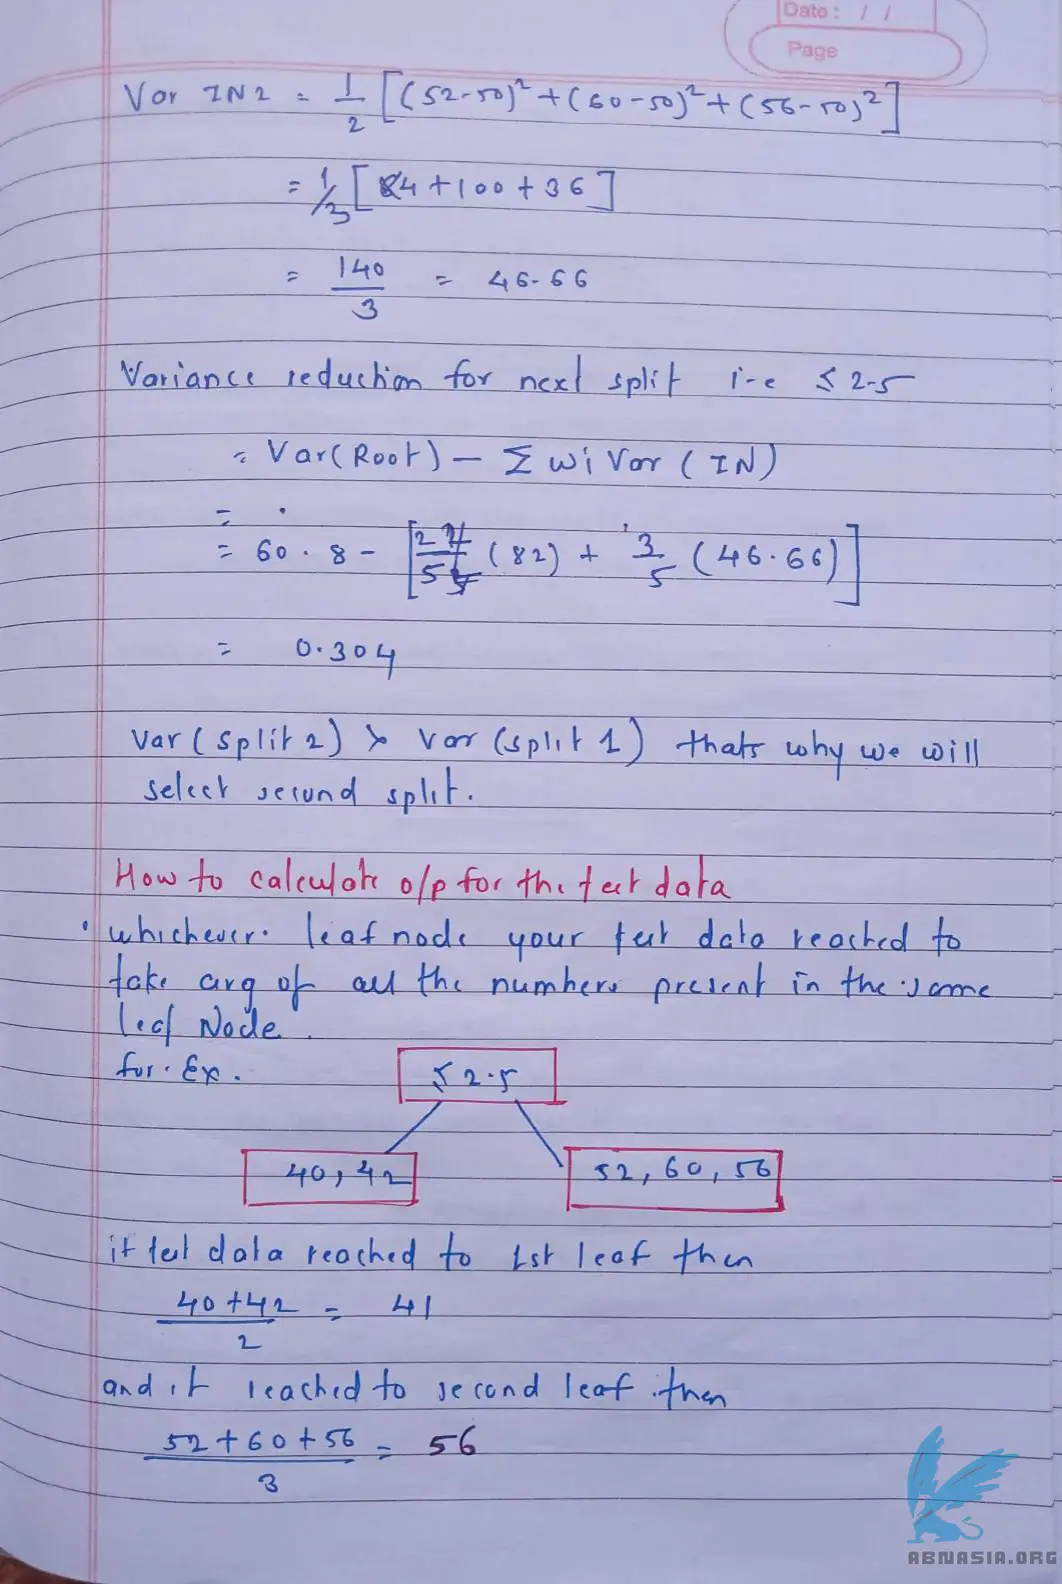 Date: / /
Page
Var IN2 = 1/2 [(52-50)² + (60-50)² + (56-50)²]
= 1/3 [84 + 100 + 36]
= 140/3 = 46.66
Variance reduction for next split i-e ≤ 2.5
= Var(Root) - Σ wi Var (IN)
= .
= 60.8 - [2/5 (82) + 3/5 (46.66)]
= 0.304
Var (split 2) > var (split 1) thats why we will
select second split.
How to calculate o/p for the test data
• whichever. leaf node your test data reached to
take avg of all the numbers present in the same
leaf Node.
for. Ex.
≤ 2.5
40, 42
52, 60, 56
if test data reached to 1st leaf then
40+42/2 = 41
and if reached to second leaf then
52+60+56/3 = 56
ABNASIA.ORG